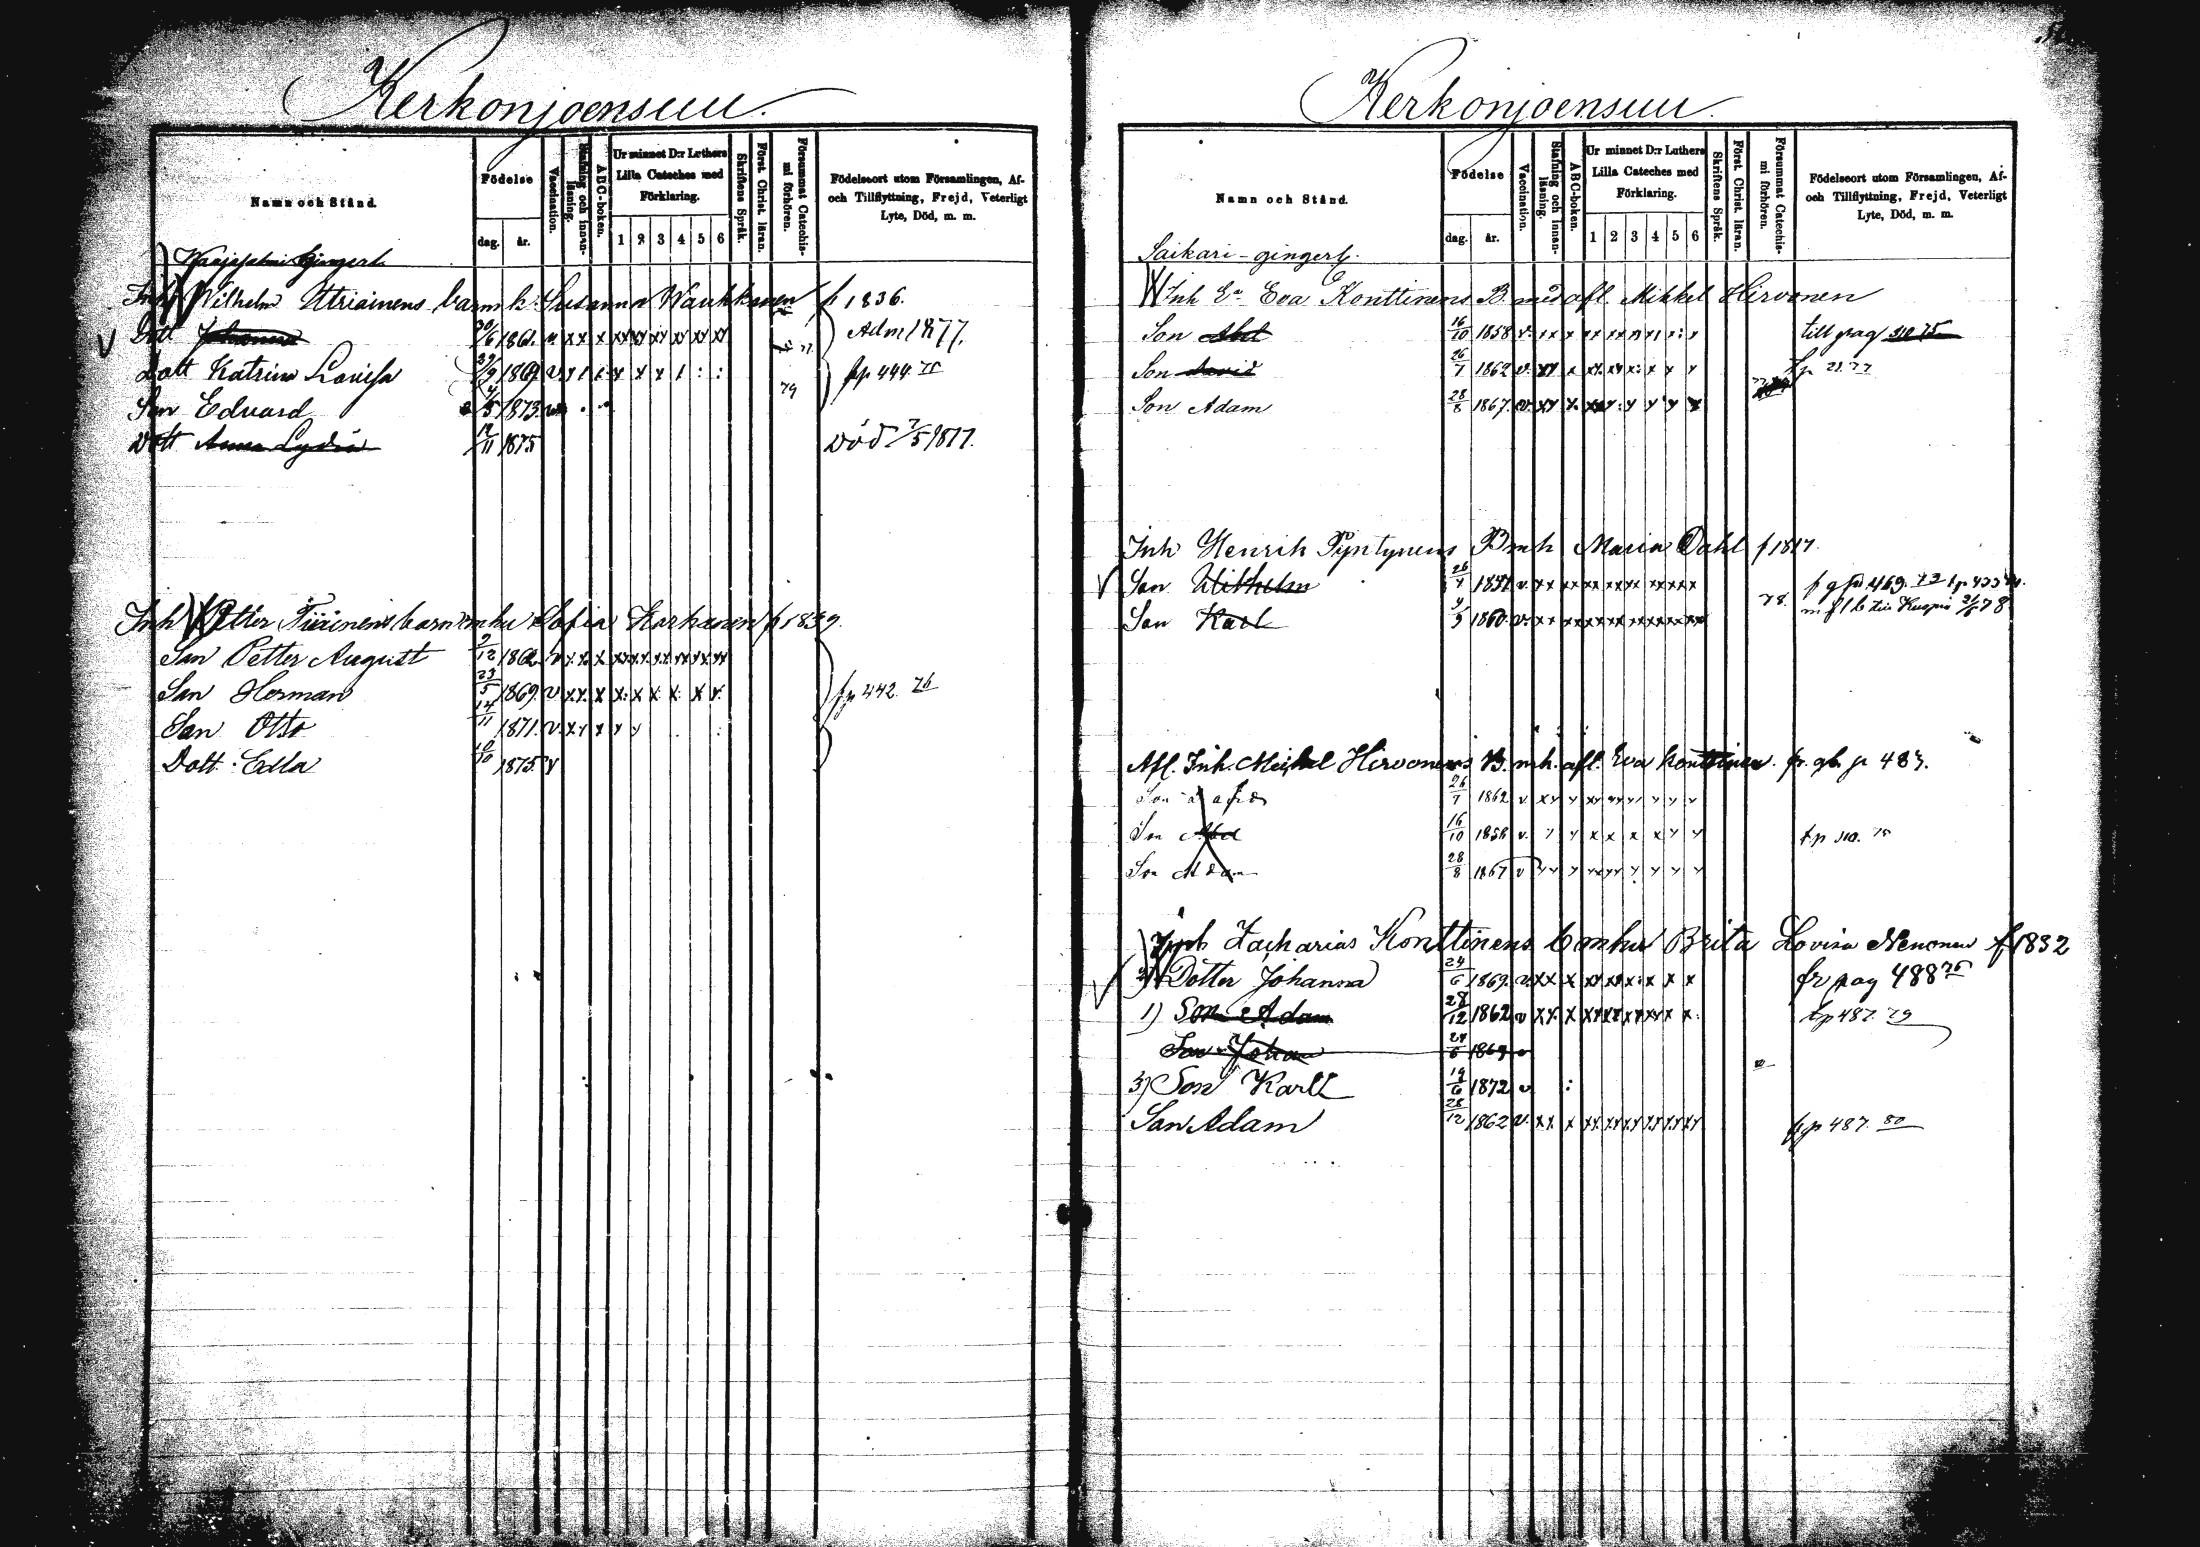 Kerkonjoensuu.
Namn och Stånd.
Födelse
dag.
år.
Vaccination.
Stafning och innan-
läsning.
ABC-boken.
Ur minnet D:r Luthers
Lilla Cateches med
Förklaring.
1 2 3 4 5 6
Skriftens Språk.
Först. Christ. läran.
Försummat Catechis-
mi förhören.
Födelseort utom Församlingen, Af-
och Tillflyttning, Frejd, Veterligt
Lyte, Död, m. m.
Inh Wilhelm Utriainens barn Susanna Wauhkonen f 1836.
Dott Johanna 30/6 1861. Adm 1877.
Dott Katrina Lovisa 1869 v 79 fp 444
Son Eduard 1873
Dott Anna Lydia 1875 Död 7/5 1877.
Inh Petter Tiirinens barn mhu Sofia Karhanen f 1839.
Son Petter August 9/12 1862 v
Son Herman 23/5 1869. v fp 442. 76
Son Otto 14/11 1871. v.
Dott. Edla 10/10 1875 v
Kerkonjoensuu.
Namn och Stånd.
Födelse
dag.
år.
Vaccination.
Stafning och innan-
läsning.
ABC-boken.
Ur minnet D:r Luthers
Lilla Cateches med
Förklaring.
1 2 3 4 5 6
Skriftens Språk.
Först. Christ. läran.
Försummat Catechis-
mi förhören.
Födelseort utom Församlingen, Af-
och Tillflyttning, Frejd, Veterligt
Lyte, Död, m. m.
Saikari-gingerb.
Inh Ea Eva Konttinens B. med afl. Mikkel Hirvonen
Son Abel 16/10 1858 v. till pag 510 75
Son David 26/7 1862 v.
Son Adam 28/8 1867. v.
Inh Henrik Pyntynens B mh Maria Dahl f 1817.
Son Wilhelm 1851 v.
Son Karl 4/9 1860. v. 78.
Afl. Inh. Michel Hirvonens B. mh. afl. Eva Konttinen. fr. gb p 483.
Son David 26/7 1862 v
Son Abel 16/10 1858 v. t.p 510. 75
Son Adam 28/8 1867 v
Zacharias Konttinens b mhu Brita Lovisa Nenonen f 1832
2) Dotter Johanna 24/6 1869. v. fr pag 488 76
1) Son Adam 28/12 1862 v tp 487. 79
Son Johan 24/6 1869 v
3) Son Karl 19/6 1872 v.
Son Adam 28/12 1862 v. fp 487. 80